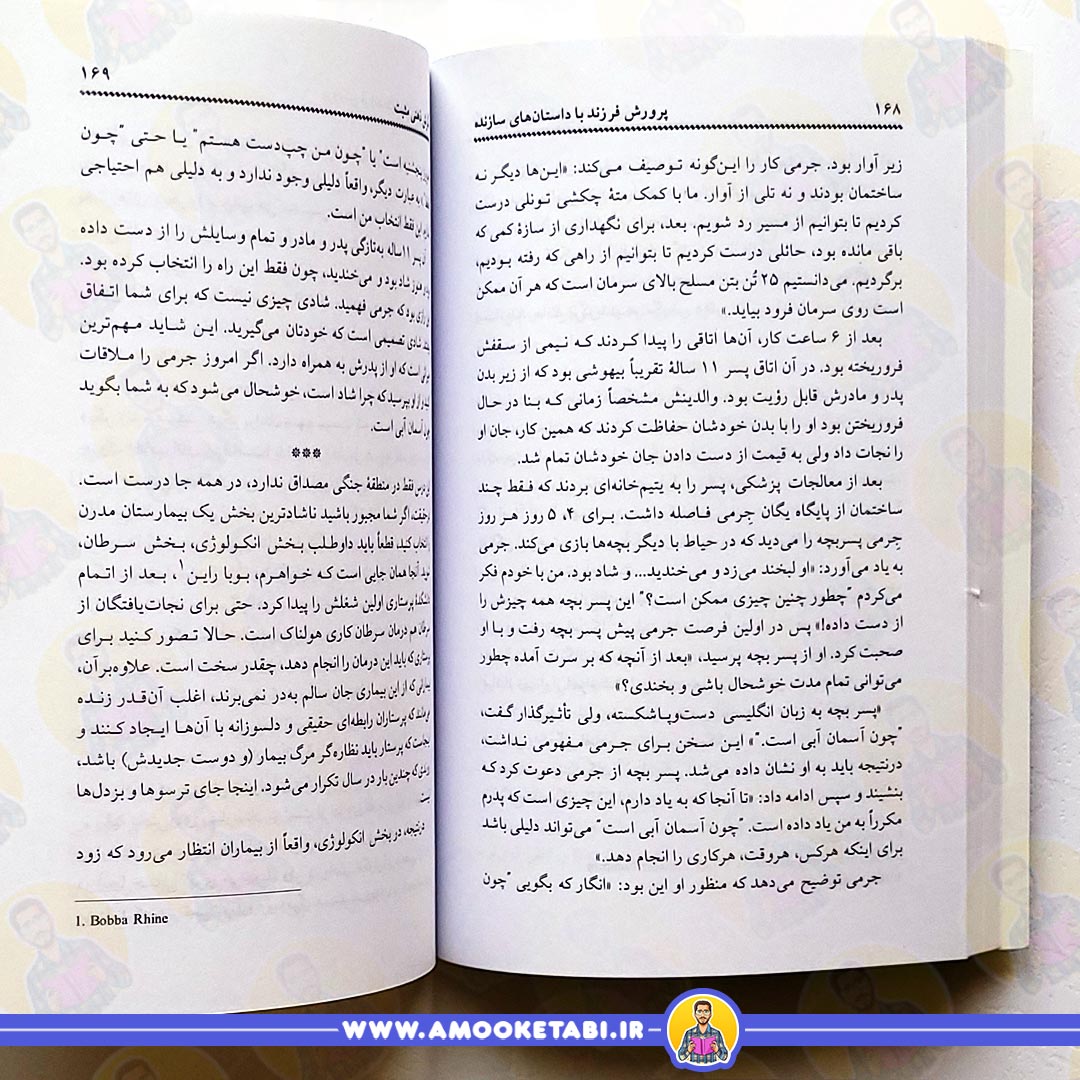 ۱۶۸
پرورش فرزند با داستان‌های سازنده
زیر آوار بود. جرمی کار را این‌گونه توصیف می‌کند: «این‌ها دیگر نه
ساختمان بودند و نه تلی از آوار. ما با کمک متهٔ چکشی تونلی درست
کردیم تا بتوانیم از مسیر رد شویم. بعد، برای نگهداری از سازهٔ کمی که
باقی مانده بود، حائلی درست کردیم تا بتوانیم از راهی که رفته بودیم،
برگردیم. می‌دانستیم ۲۵ تُن بتن مسلح بالای سرمان است که هر آن ممکن
است روی سرمان فرود بیاید.»
بعد از ۶ ساعت کار، آن‌ها اتاقی را پیدا کردند که نیمی از سقفش
فروریخته بود. در آن اتاق پسر ۱۱ سالهٔ تقریباً بیهوشی بود که از زیر بدن
پدر و مادرش قابل رؤیت بود. والدینش مشخصاً زمانی که بنا در حال
فروریختن بود او را با بدن خودشان حفاظت کردند که همین کار، جان او
را نجات داد ولی به قیمت از دست دادن جان خودشان تمام شد.
بعد از معالجات پزشکی، پسر را به یتیم‌خانه‌ای بردند که فقط چند
ساختمان از پایگاه یگان جِرمی فاصله داشت. برای ۴، ۵ روز هر روز
جِرمی پسربچه را می‌دید که در حیاط با دیگر بچه‌ها بازی می‌کند. جرمی
به یاد می‌آورد: «او لبخند می‌زد و می‌خندید... و شاد بود. من با خودم فکر
می‌کردم "چطور چنین چیزی ممکن است؟" این پسر بچه همه چیزش را
از دست داده!» پس در اولین فرصت جرمی پیش پسر بچه رفت و با او
صحبت کرد. او از پسر بچه پرسید، «بعد از آنچه که بر سرت آمده چطور
می‌توانی تمام مدت خوشحال باشی و بخندی؟»
«پسر بچه به زبان انگلیسی دست‌وپاشکسته، ولی تأثیرگذار گفت،
"چون آسمان آبی است."» این سخن برای جرمی مفهومی نداشت،
درنتیجه باید به او نشان داده می‌شد. پسر بچه از جرمی دعوت کرد که
بنشیند و سپس ادامه داد: «تا آنجا که به یاد دارم، این چیزی است که پدرم
مکرراً به من یاد داده است. "چون آسمان آبی است" می‌تواند دلیلی باشد
برای اینکه هرکس، هروقت، هرکاری را انجام دهد.»
جرمی توضیح می‌دهد که منظور او این بود: «انگار که بگویی "چون
۱۶۹
ذهنی مثبت
پنجشنبه است" یا "چون من چپ‌دست هستم" یا حتی "چون
به عبارت دیگر، واقعاً دلیلی وجود ندارد و به دلیلی هم احتیاجی
این فقط انتخاب من است.
پسر ۱۱ساله به‌تازگی پدر و مادر و تمام وسایلش را از دست داده
هنوز شاد بود و می‌خندید، چون فقط این راه را انتخاب کرده بود.
رازی بود که جرمی فهمید. شادی چیزی نیست که برای شما اتفاق
شادی تصمیمی است که خودتان می‌گیرید. این شاید مهم‌ترین
است که او از پدرش به همراه دارد. اگر امروز جرمی را ملاقات
و از او بپرسید که چرا شاد است، خوشحال می‌شود که به شما بگوید
آسمان آبی است.
***
این درس فقط در منطقهٔ جنگی مصداق ندارد، در همه جا درست است.
درحقیقت، اگر شما مجبور باشید ناشادترین بخش یک بیمارستان مدرن
را انتخاب کنید، قطعاً باید داوطلب بخش انکولوژی، بخش سرطان،
شوید. آنجا همان جایی است که خواهرم، بوبا راین۱، بعد از اتمام
دانشکدهٔ پرستاری اولین شغلش را پیدا کرد. حتی برای نجات‌یافتگان از
سرطان هم درمان سرطان کاری هولناک است. حالا تصور کنید برای
پرستاری که باید این درمان را انجام دهد، چقدر سخت است. علاوه‌برآن،
بیمارانی که از این بیماری جان سالم به‌در نمی‌برند، اغلب آن‌قدر زنده
می‌مانند که پرستاران رابطه‌ای حقیقی و دلسوزانه با آن‌ها ایجاد کنند و
اینجاست که پرستار باید نظاره‌گر مرگ بیمار (و دوست جدیدش) باشد،
که چندین بار در سال تکرار می‌شود. اینجا جای ترسوها و بزدل‌ها
درنتیجه، در بخش انکولوژی، واقعاً از بیماران انتظار می‌رود که زود
1. Bobba Rhine
WWW.AMOOKETABI.IR